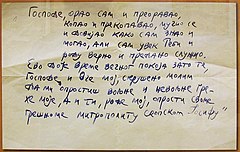 Господе, орао сам и преоравао,
копао и прекопавао, мучио се
и довијао како сам знао и
могао, али сам увек Теби и
роду верно и предано служио.
Сво моје време вечног покоја зато ти,
Господе и Боже мој, скрушено молим
да ми опростиш вољне и невољне гре-
хе моје, а и ти, роде мој, опрости своме
грешноме митрополиту скопском Јосифу"